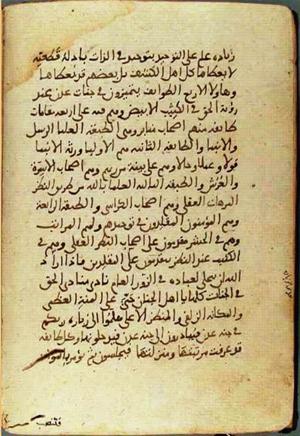 زيادة علم على التوحيد بتوحيد في الذات بادلة قطعية
لا بعكاها كل اهل الكشف بل بعضهم قد يعطاها
وهاولا الاربع الطوايف يتميزون في جنات عدن عند
رؤية الحق في الكثيب الابيض وهم فيه على اربعة مقامات
طايفة منهم اصحاب منابر وهي الطبقة العليا الرسل
والانبيا والطايفة الثانية هم الاوليا ورثة الانبيا
قولا وعملا وحالا وهم على بينة من ربهم وهم اصحاب الاسرة
والعرش والطبقة الثالثة العلما بالله من طريق النظر
البرهان العقلي وهم اصحاب الكراسي والطبقة الرابعة
وهم المؤمنون المقلدون في توحيدهم ولهم المراتب
وهم في الحشر مقدمون على اصحاب النظر العقلي وهم في
الكثيب عند النظر يتقدمون على المقلدين فاذا اراد
الله ان يتجلى لعباده في الزور العام نادى منادي الحق
في الجنات كلها يا اهل الجنان حي على المنة العظمى
والمكانة الزلفى والمنظر الاعلى هلموا الى زيارة ربكم
في جنة عدن فيبادرون الى جنة عدن فيدخلونها وكل طايفة
قد عرفت مرتبتها ومنزلتها فيجلسون ثم يؤمر بالموايد